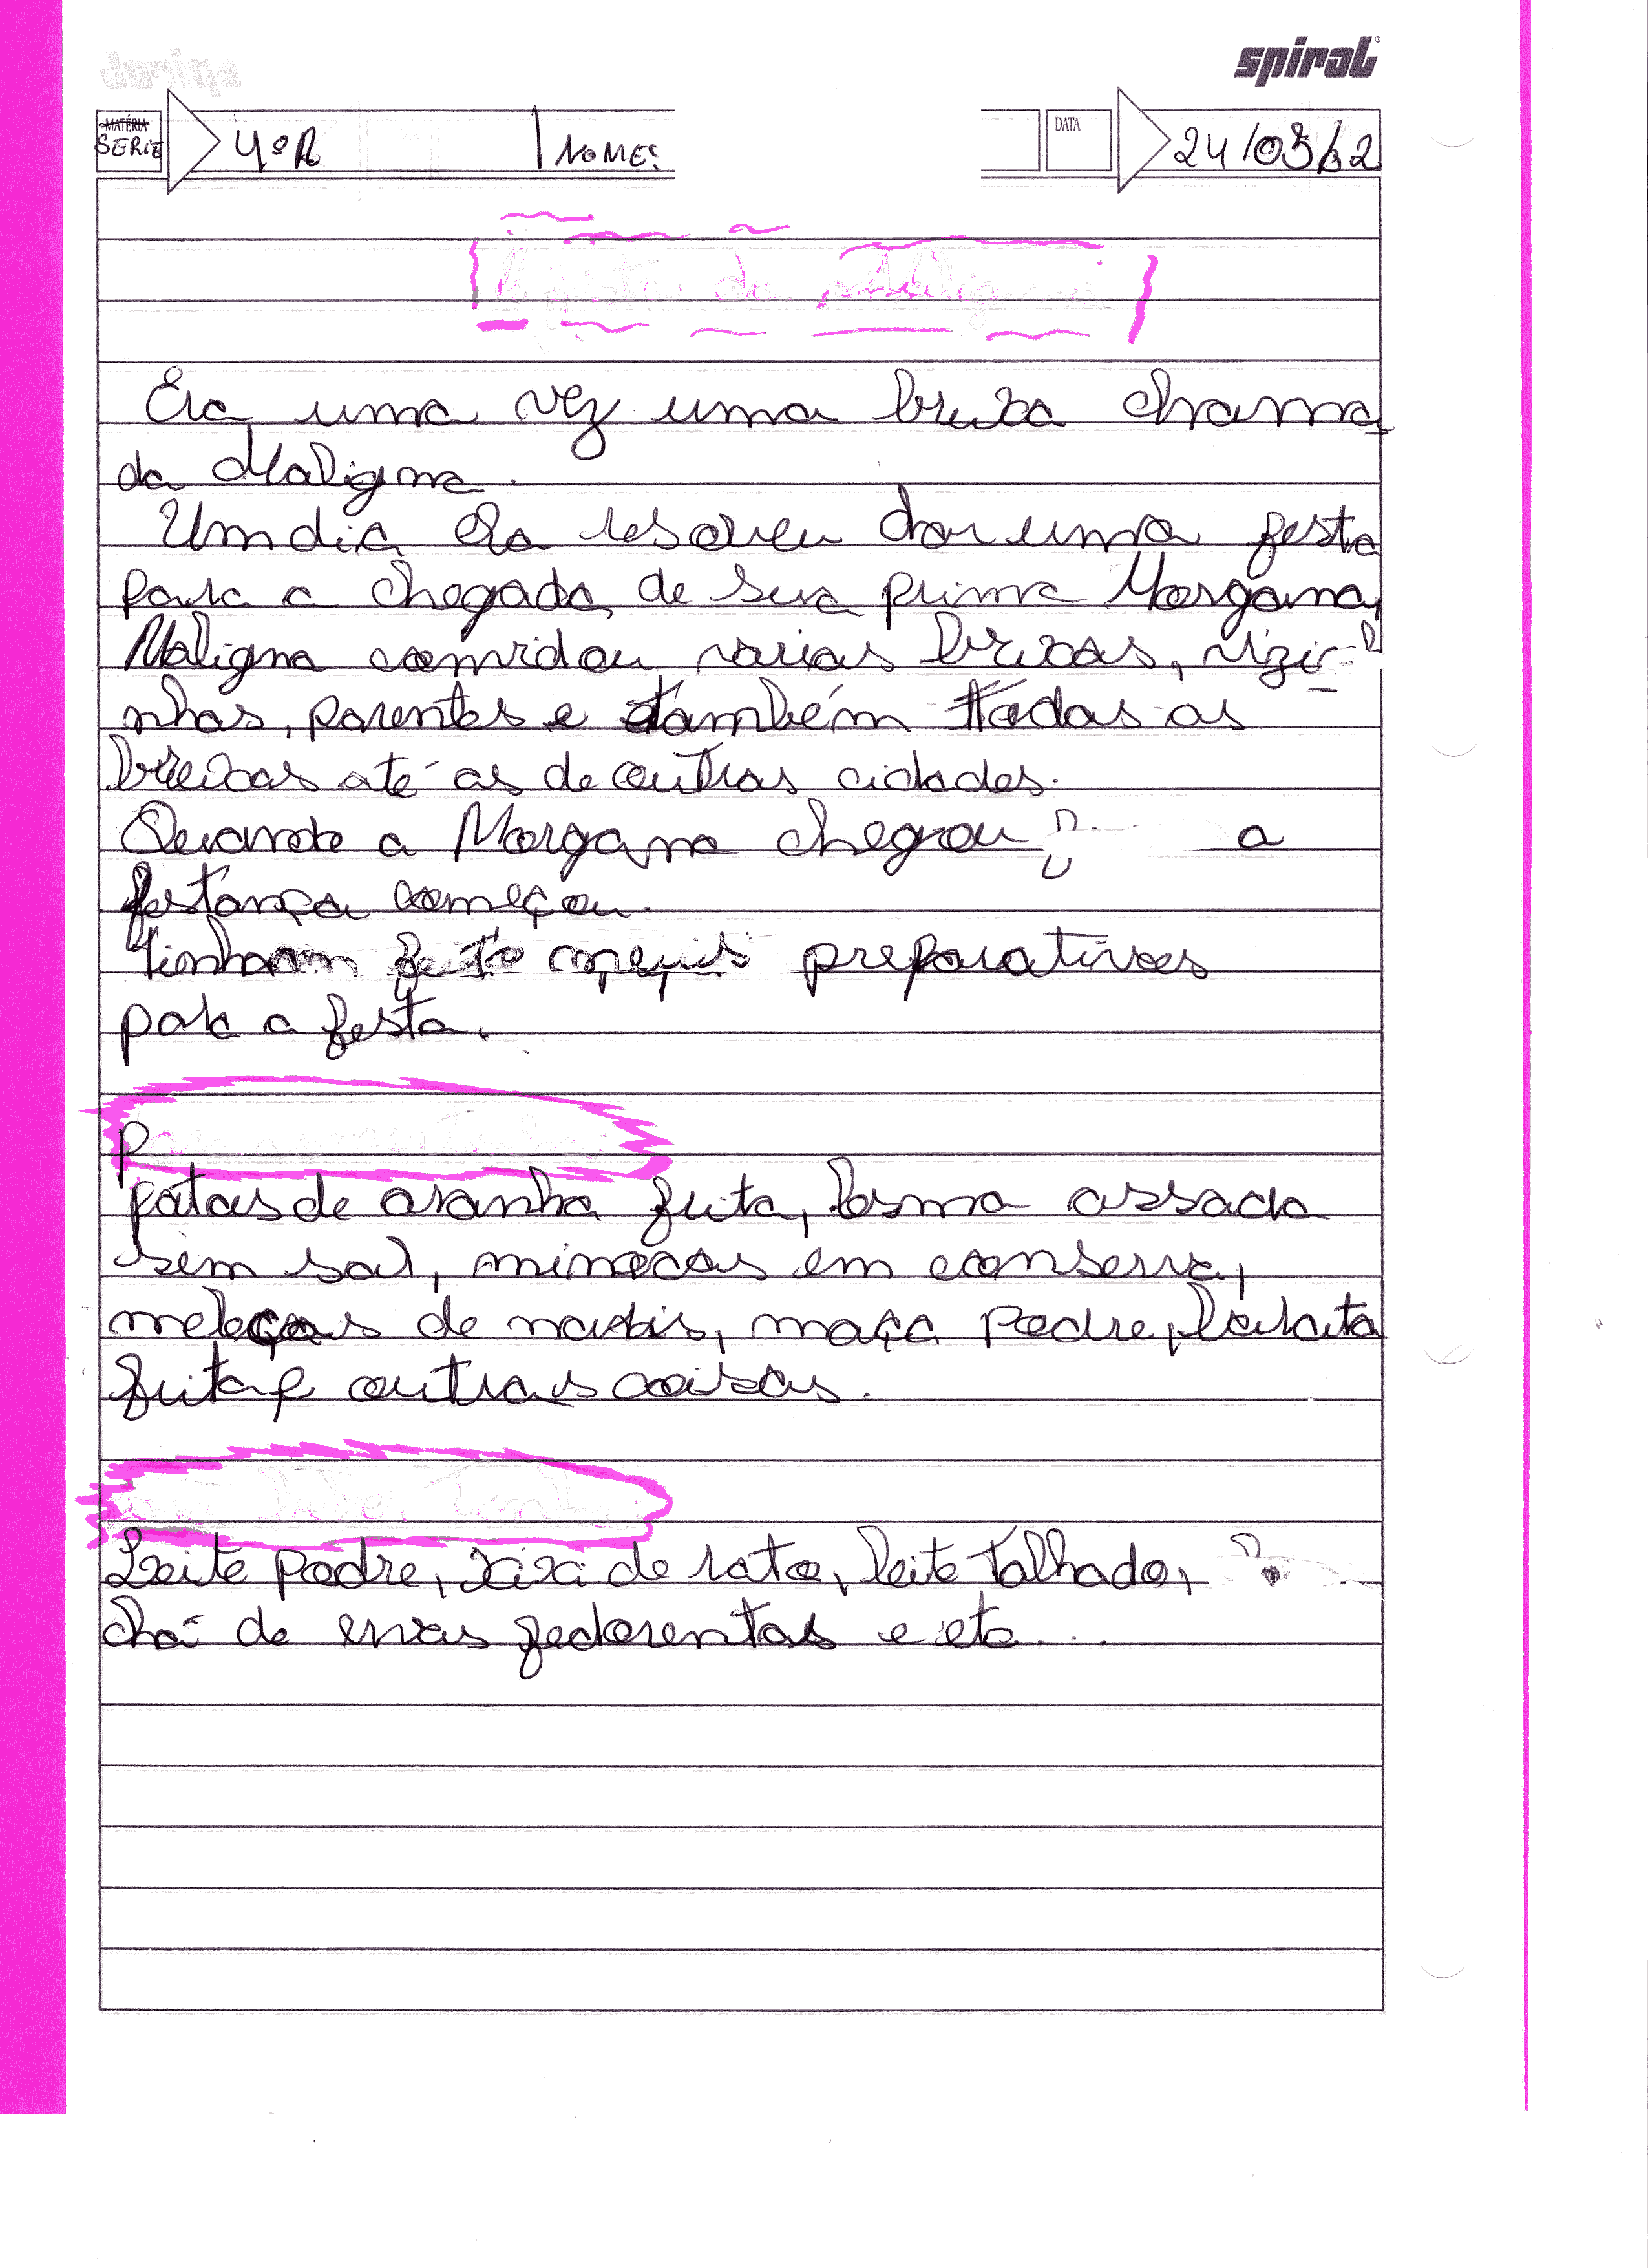 spiral
SERIE 4ºA NOME: DATA 24/05/12
A festa da Maligna
Era uma vez uma bruxa chama
da Maligna.
Um dia ela resolveu dar uma festa
para a chegada de sua prima Morgana,
Maligna convidou varias bruxas, vizi-
nhas, parentes e também todas as
bruxas até as de outras cidades.
Quando a Morgana chegou a
festança começou.
Tinham feito preparativos
para a festa.
P
patas de aranha frita, lesma assada
sem sal, minocas em conserva,
melecas de nariz, maça podre, barata
frita e outras coisas.
Para beber tinha
Leite podre, xixi de rato, leite talhado,
chá de ervas fedorentas e etc...